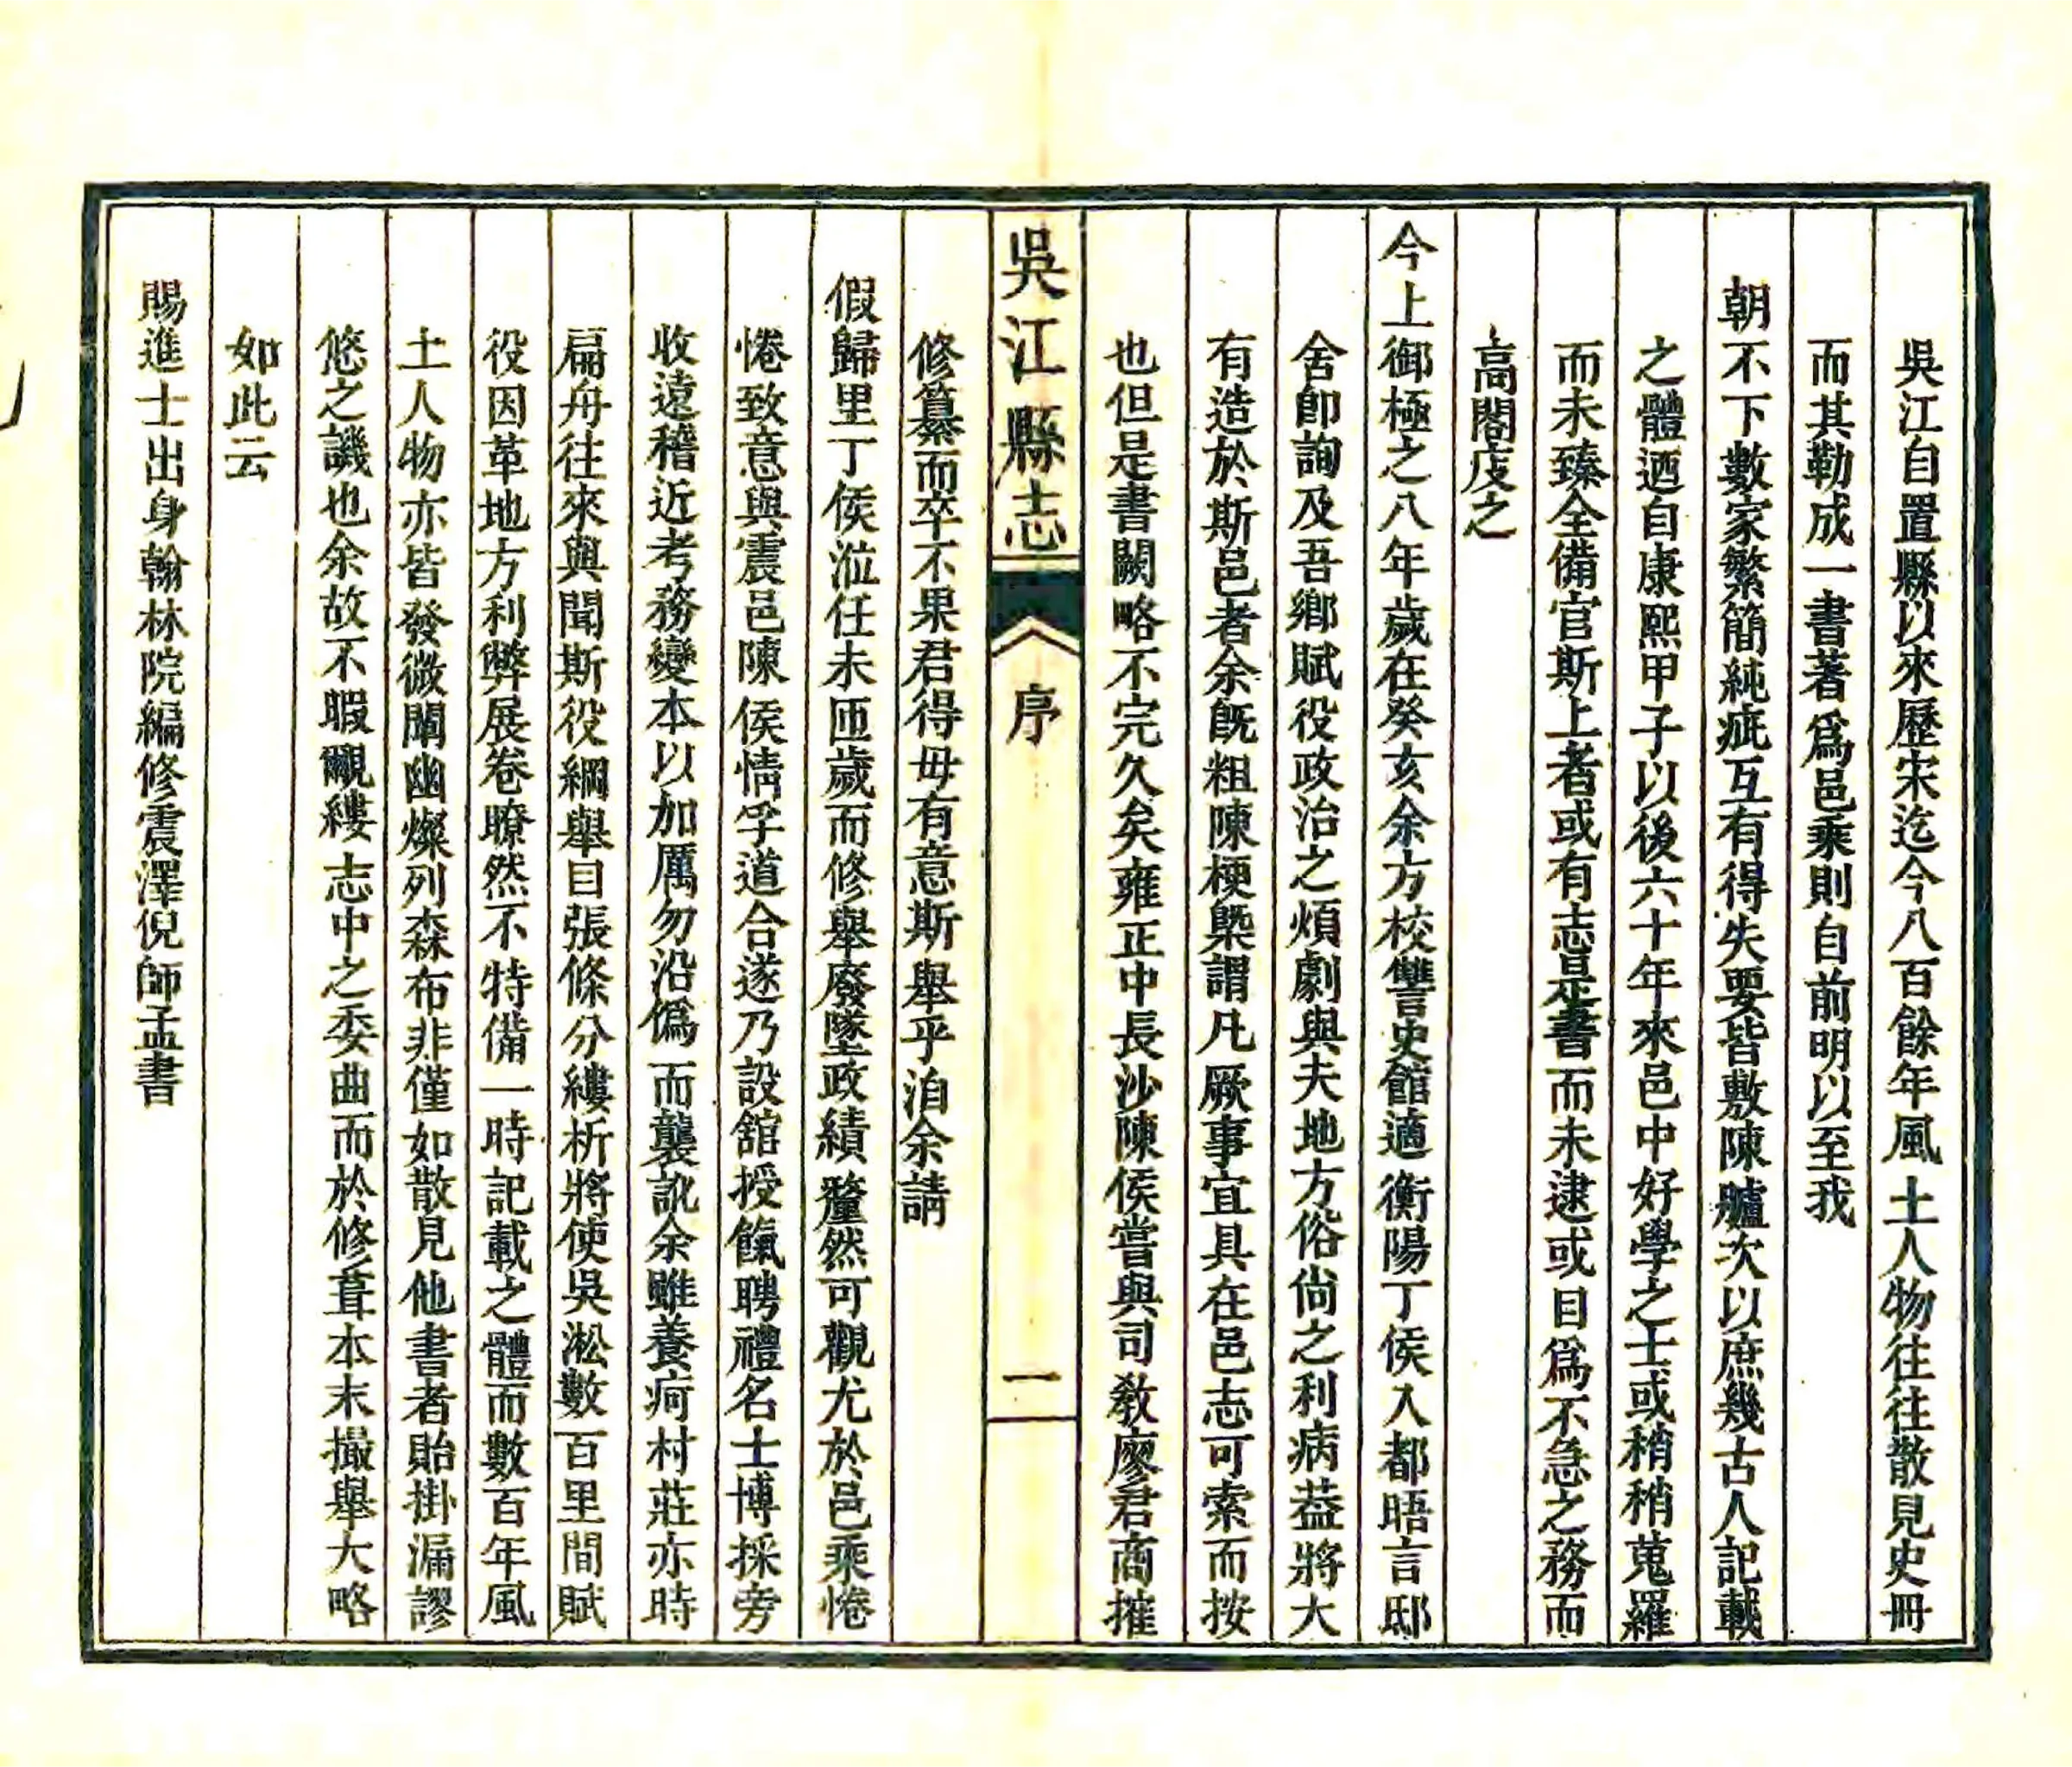 吳江自置縣以來歷宋迄今八百餘年風土人物往往散見史冊
而其勒成一書著爲邑乘則自前明以至我
朝不下數家繁簡純疵互有得失要皆敷陳臚次以庶幾古人記載
之體迺自康熙甲子以後六十年來邑中好學之士或稍稍蒐羅
而未臻全備官斯土者或有志是書而未逮或目爲不急之務而
高閣庋之
今上御極之八年歲在癸亥余方校讐史館適衡陽丁侯入都晤言邸
舍卽詢及吾鄉賦役政治之煩劇與夫地方俗尙之利病葢將大
有造於斯邑者余旣粗陳梗槩謂凡厥事宜具在邑志可索而按
也但是書闕略不完久矣雍正中長沙陳侯嘗與司敎廖君商搉
吳江縣志
序
一
修纂而卒不果君得毋有意斯舉乎洎余請
假歸里丁侯涖任未匝歲而修舉廢墜政績釐然可觀尤於邑乘惓
惓致意與震邑陳侯情孚道合遂乃設舘授餼聘禮名士博採旁
收遠稽近考務變本以加厲勿沿僞而襲訛余雖養疴村莊亦時
扁舟往來與聞斯役綱舉目張條分縷析將使吳淞數百里間賦
役因革地方利弊展卷瞭然不特備一時記載之體而數百年風
土人物亦皆發微闡幽燦列森布非僅如散見他書者貽掛漏謬
悠之譏也余故不暇覼縷志中之委曲而於修葺本末撮舉大略
如此云
賜進士出身翰林院編修震澤倪師孟書